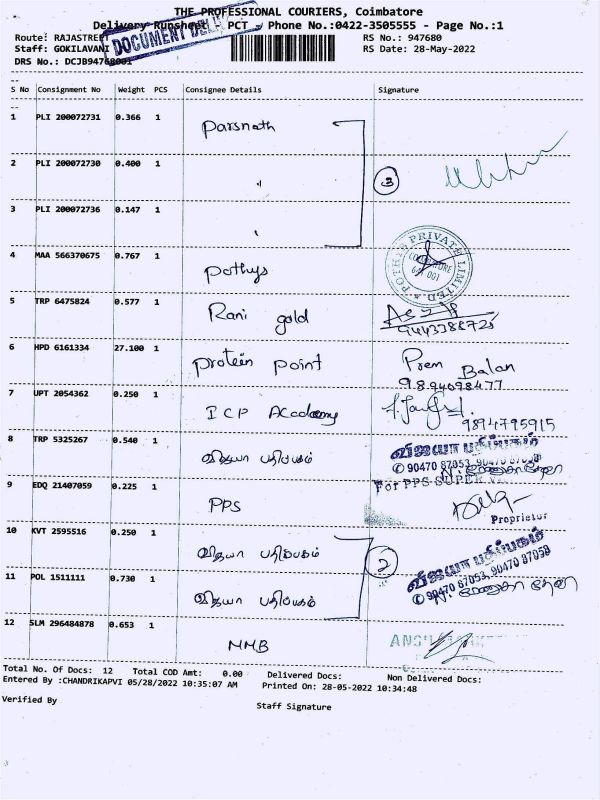 THE PROFESSIONAL COURIERS, Coimbatore
Delivery Runsheet - PCT - Phone No.:0422-3505555 - Page No.:1
Route: RAJASTREET RS No.: 947680
Staff: GOKILAVANI RS Date: 28-May-2022
DRS No.: DCJB94768001
DOCUMENT
S No Consignment No Weight PCS Consignee Details Signature
1 PLI 200072731 0.366 1 Parsnath
2 PLI 200072730 0.400 1 " 3
3 PLI 200072736 0.147 1
4 MAA 566370675 0.767 1 pothys
POTHYS PRIVATE LIMITED
5 TRP 6475824 0.577 1 Rani gold
6 HPD 6161334 27.100 1 protein point Prem Balan
9894098477
7 UPT 2054362 0.250 1 ICP Academy
9894795915
8 TRP 5325267 0.540 1 விஜயா பதிப்பகம் விஜயா பதிப்பகம்
9 EDQ 21407059 0.225 1 PPS For PPS SUPER
Proprietor
10 KVT 2595516 0.250 1 விஜயா பதிப்பகம் 2 விஜயா பதிப்பகம்
✆ 90470 87053, 90470 87059
11 POL 1511111 0.730 1 விஜயா பதிப்பகம்
12 SLM 296484878 0.653 1 MMB
Total No. Of Docs: 12 Total COD Amt: 0.00 Delivered Docs: Non Delivered Docs:
Entered By :CHANDRIKAPVI 05/28/2022 10:35:07 AM Printed On: 28-05-2022 10:34:48
Verified By Staff Signature